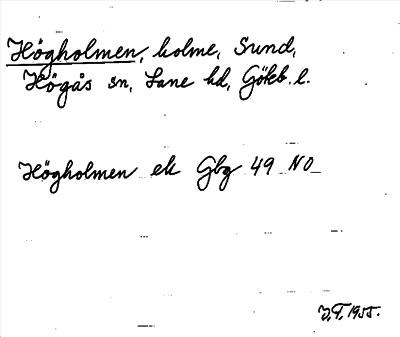 Högholmen, holme, Sund,
Högås sn, Lane hd, Gökb. l.
Högholmen ek Gbg 49 NO
1955.